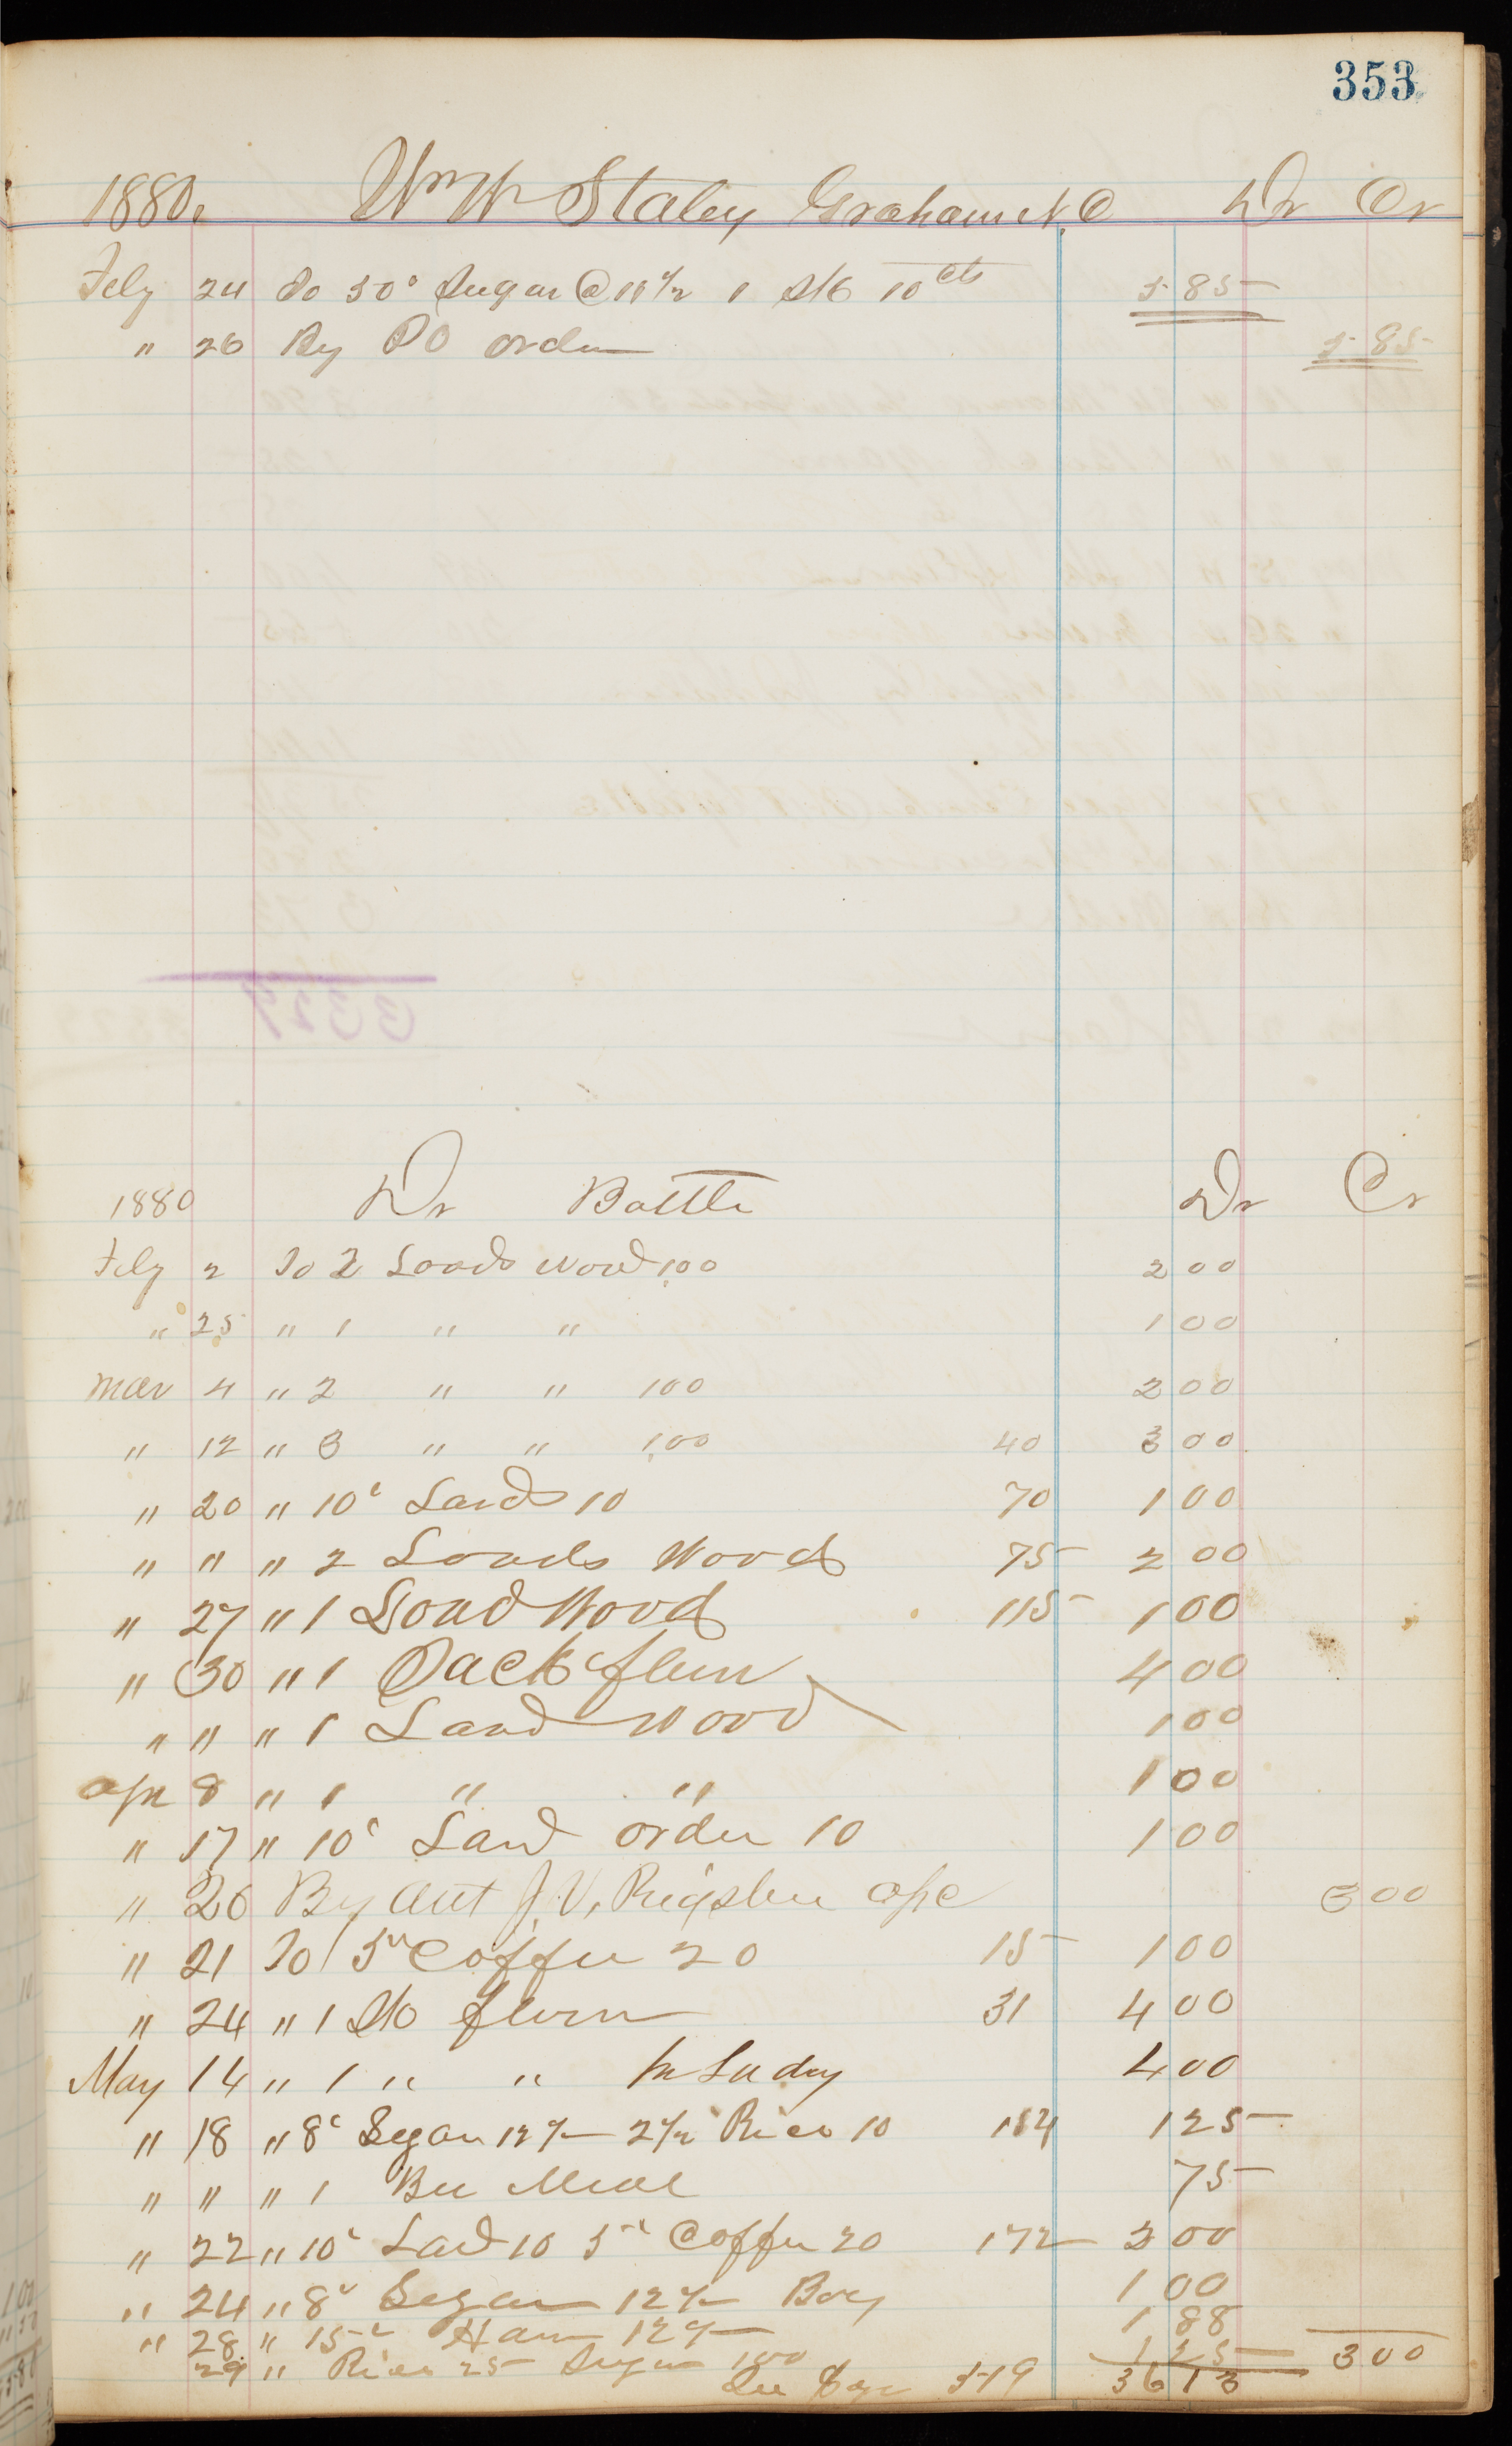 353
1880. Wm W Staley Graham N.C Dr Cr
Feby 24 To 50# Sugar @ 11 1/2 1 Sk 10 cts 5 85
" 26 By PO order 5 85
1880 Dr Battle Dr Cr
Feby 2 To 2 Loads Wood 100 2 00
" 25 " 1 " " 1 00
Mar 4 " 2 " " 100 2 00
" 12 " 3 " " 100 40 3 00
" 20 " 10# Lard 10 70 1 00
" " " 2 Loads Wood 75 2 00
" 27 " 1 Load Wood 115 1 00
" 30 " 1 Sack flour 4 00
" " " 1 Load Wood 1 00
Apr 8 " 1 " " 1 00
" 17 " 10# Lard order 10 1 00
" 20 By Amt J. V. Rigsbee a/c 3 00
" 21 To 5# Coffee 20 15 1 00
" 24 " 1 Sk flour 31 4 00
May 14 " 1 " " 4 00
" 18 " 8# Sugar 12 1/2 2 1/2 Rice 10 154 1 25
" " " 1 Bu Meal 75
" 22 " 10# Lard 10 5# Coffee 20 172 2 00
" 24 " 8# Sugar 12 1/2 Boy 1 00
" 28 " 15# Ham 12 1/2 1 88
29 " Rice 25 Sugar 100 1 25 3 00
See Page 519 36 13